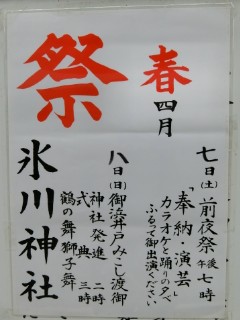 春
四月
祭
七日(土)前夜祭午後七時
「奉納・演芸」
カラオケと踊りの夕べ
ふるって御出演ください
八日(日)御浜井戸みこし渡御
神社発進 二時
式典 三時
鶴の舞獅子舞
氷川神社